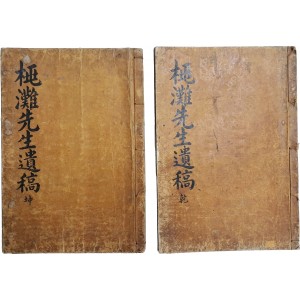 灘先生遺稿
乾
灘先生遺稿
坤